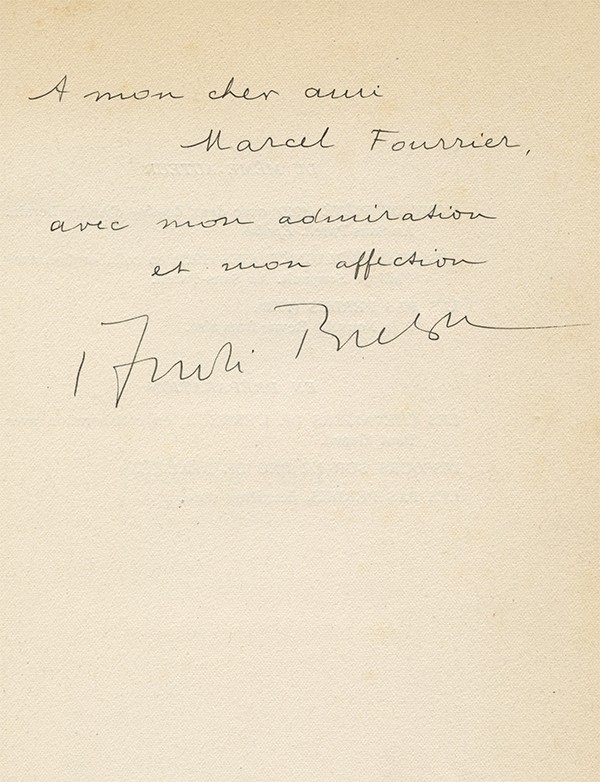 A mon cher ami
Marcel Fourrier,
avec mon admiration
et mon affection
André Breton